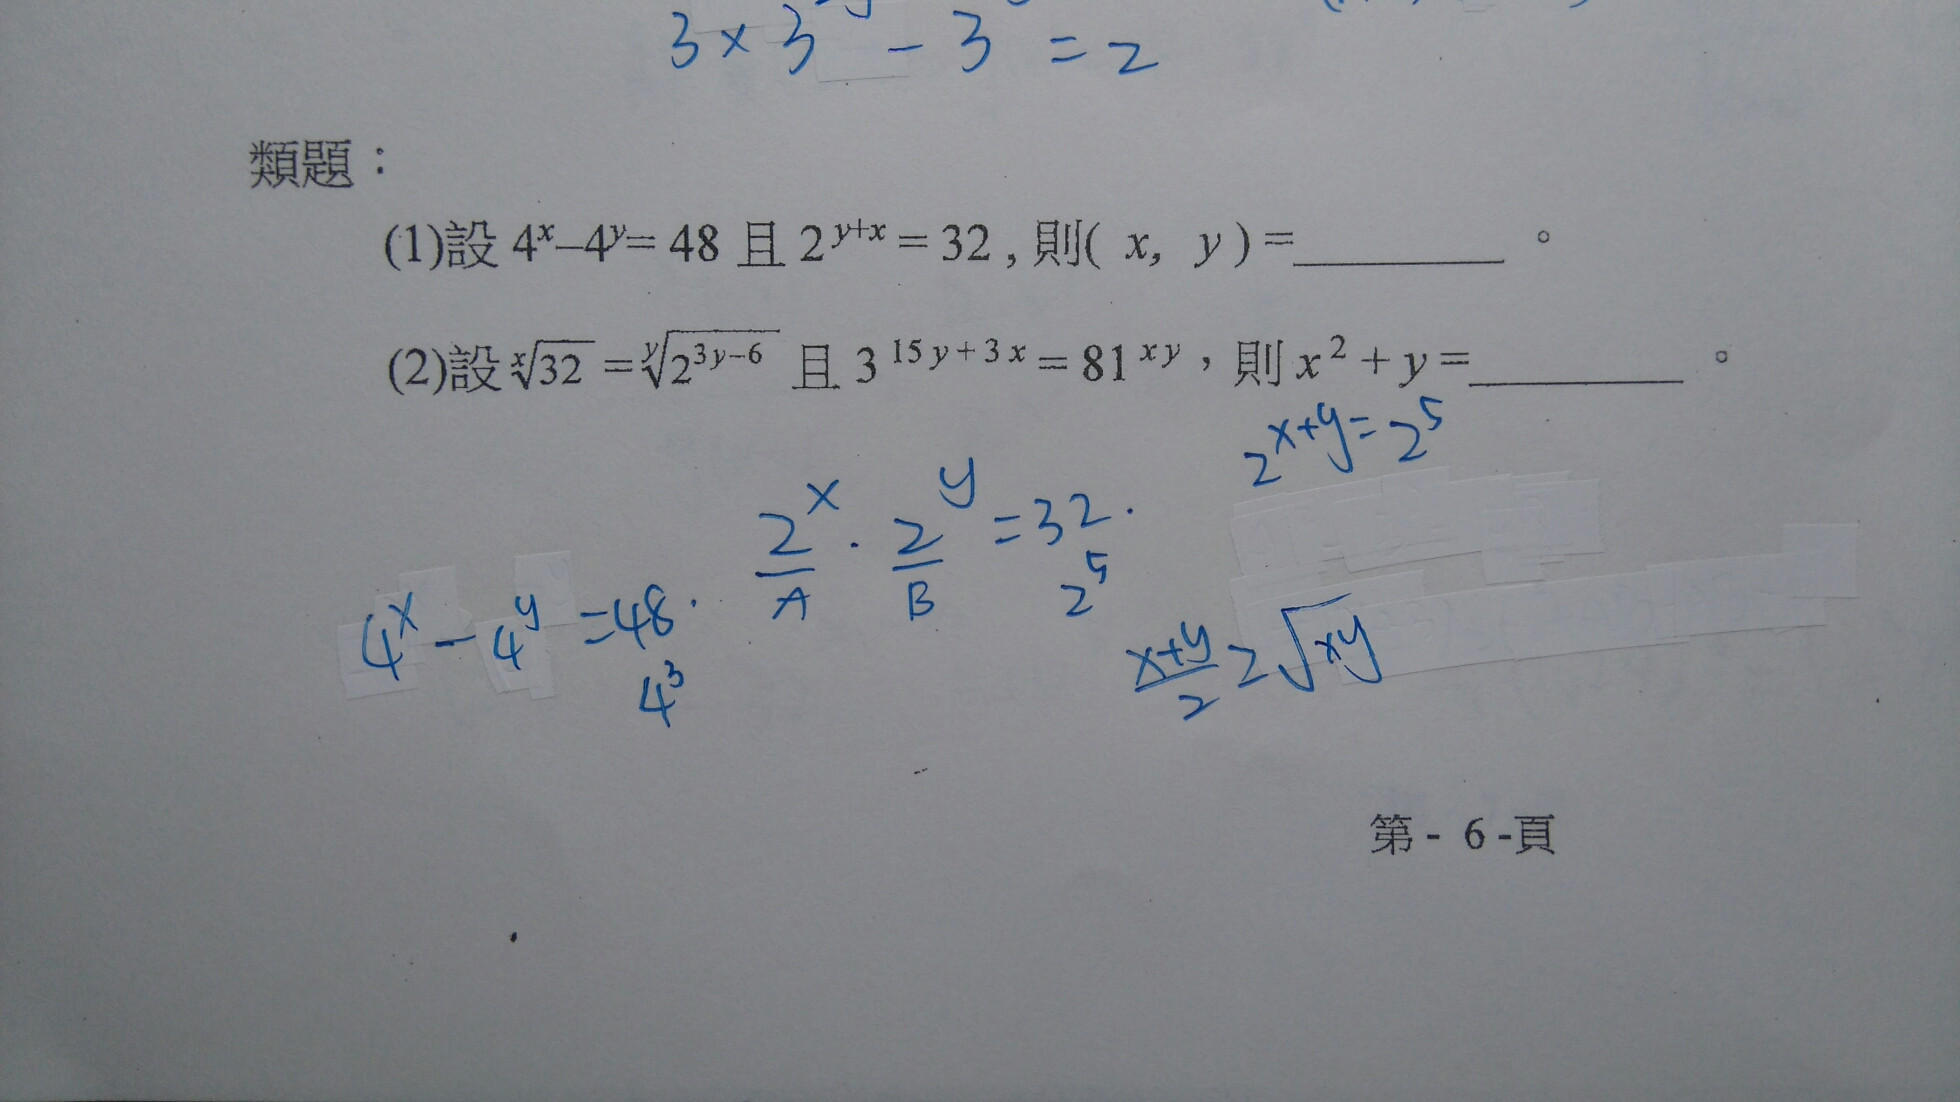 3 × 3 - 3 = 2
類題：
(1)設 4ˣ–4ʸ= 48 且 2ʸ⁺ˣ = 32 , 則( x, y ) =________ 。
(2)設 ˣ√32 = ʸ√2³ʸ⁻⁶ 且 3¹⁵ʸ⁺³ˣ = 81ˣʸ，則 x² + y =________ 。
2ˣ⁺ʸ = 2⁵
2ˣ · 2ʸ = 32.
A B 2⁵
4ˣ - 4ʸ = 48.
4³
x+y/2 ≥ √xy
第 - 6 -頁